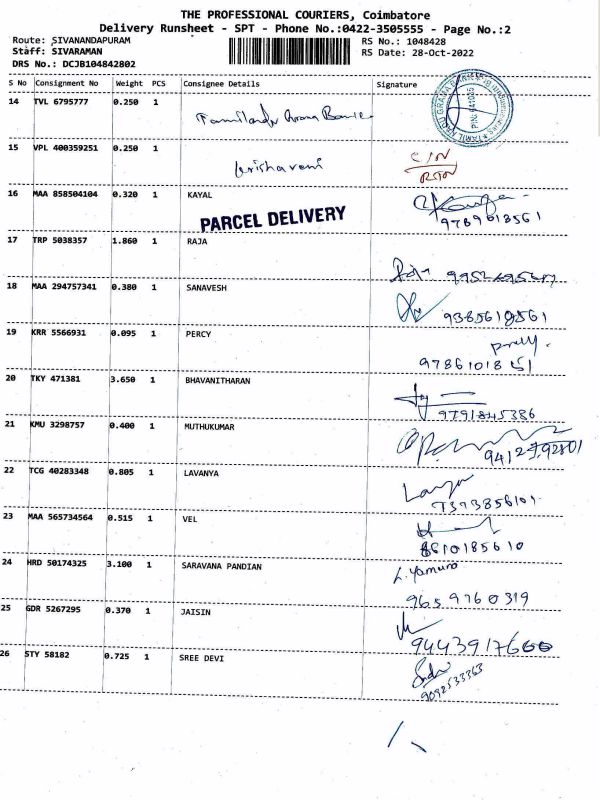 THE PROFESSIONAL COURIERS, Coimbatore
Delivery Runsheet - SPT - Phone No.:0422-3505555 - Page No.:2
Route: SIVANANDAPURAM RS No.: 1048428
Staff: SIVARAMAN RS Date: 28-Oct-2022
DRS No.: DCJB104842802
S No Consignment No Weight PCS Consignee Details Signature
14 TVL 6795777 0.250 1 Tamilandu Grama Bank
15 VPL 400359251 0.250 1 krishaveni
16 MAA 858504104 0.320 1 KAYAL
9789618561
PARCEL DELIVERY
17 TRP 5038357 1.860 1 RAJA
18 MAA 294757341 0.380 1 SANAVESH
9385618561
19 KRR 5566931 0.095 1 PERCY
9786101851
20 TKY 471381 3.650 1 BHAVANITHARAN
9791845386
21 KMU 3298757 0.400 1 MUTHUKUMAR
22 TCG 40283348 0.805 1 LAVANYA
7373856101
23 MAA 565734564 0.515 1 VEL
24 HRD 50174325 3.100 1 SARAVANA PANDIAN
9659760319
25 GDR 5267295 0.370 1 JAISIN
26 STY 58182 0.725 1 SREE DEVI
9092533363